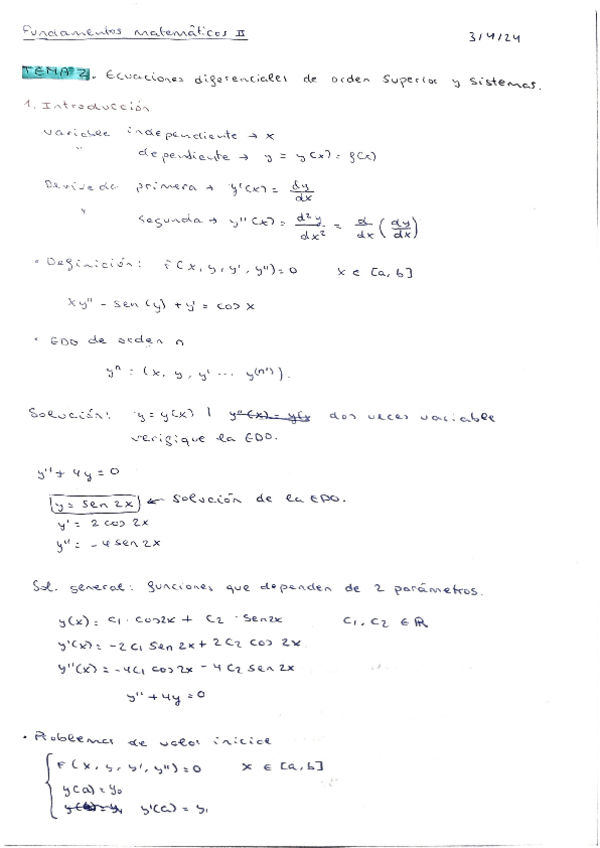 Fundamentos matemáticos II 3/4/24
TEMA 2. Ecuaciones diferenciales de orden superior y sistemas.
1. Introducción
variable independiente → x
" dependiente → y = y(x) = f(x)
Derivada primera → y'(x) = dy/dx
" segunda → y''(x) = d²y/dx² = d/dx (dy/dx)
• Definición: F(x, y, y', y'') = 0 x ∈ [a, b]
xy'' - sen(y) + y' = cos x
• EDO de orden n
yⁿ = (x, y, y' ... y⁽ⁿ'⁾).
Solución: y = y(x) | y''(x) = y(x dos veces variable
verifique la EDO.
y'' + 4y = 0
y = sen 2x ← Solución de la EDO.
y' = 2 cos 2x
y'' = -4 sen 2x
Sol. general: funciones que dependen de 2 parámetros.
y(x) = c₁ · cos2x + c₂ · sen2x c₁, c₂ ∈ ℝ
y'(x) = -2c₁ sen 2x + 2c₂ cos 2x
y''(x) = -4c₁ cos 2x - 4c₂ sen 2x
y'' + 4y = 0
• Problemas de valor inicial
F(x, y, y', y'') = 0 x ∈ [a, b]
y(a) = y₀
y(b) = y₁ y'(a) = y₁